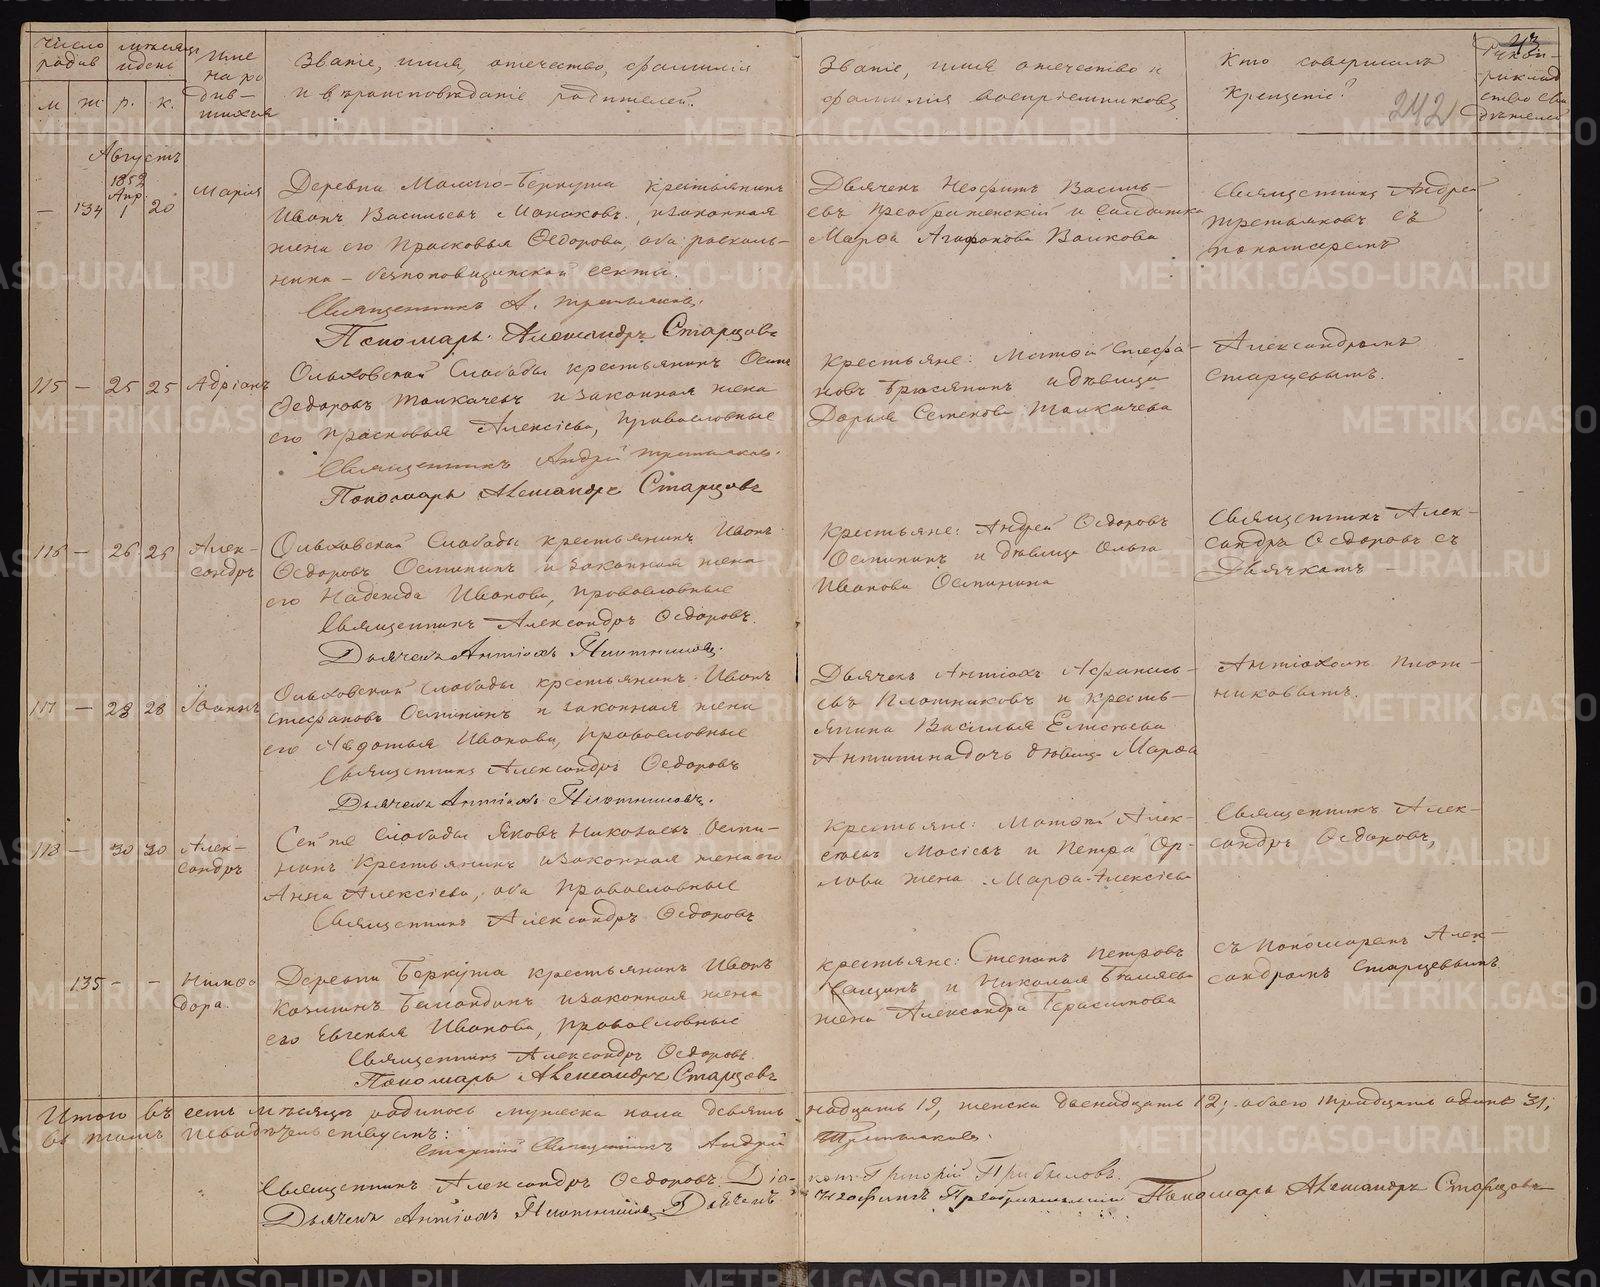 число родив
месяцъ и день
Имя на родившихся
Званіе, имя, отчество, фамилія
и вѣроисповѣданіе родителей.
Званіе, имя отчество и
фамилія воспріемниковъ
Кто совершалъ
крещеніе?
242
43
м. ж. р. к.
Августъ
1852
Апр.
— 134 1 20 Марія
Деревни Беркута крестьянинъ
Иванъ Васильевъ и законная
жена его Прасковья Ѳедорова, оба расколь-
ники – безпоповщинской секты.
Священникъ А. Третьяковъ.
Пономарь Александръ Старцовъ
Дьячекъ Неофитъ Василь-
евъ Преображенскій и солдатка
Марѳа Агафонова Волкова
Священникъ Андрей
Третьяковъ съ
пономаремъ
115 — 25 25 Адріанъ
Ольховской Слободы крестьянинъ Осипъ
Ѳедоровъ Толкачевъ и законная жена
его Прасковья Алексіева, православные
Священникъ Андрей Третьяковъ.
Пономарь Александръ Старцовъ
крестьяне: Матѳей Стефа-
новъ и дѣвица
Дарья Семенова Толкачева
Александромъ
Старцевымъ.
116 — 26 26 Алек-
сандръ
Ольховской Слободы крестьянинъ Иванъ
Ѳедоровъ Осминнъ и законная жена
его Надежда Иванова, православные
Священникъ Александръ Ѳедоровъ.
Дьячекъ Антіохъ Плотниковъ.
крестьяне: Андрей Ѳедоровъ
Осмининъ и дѣвица Ольга
Иванова Осминина
Священникъ Алек-
сандръ Ѳедоровъ съ
Дьячкомъ –
117 — 28 28 Іоаннъ
Ольховской Слободы крестьянинъ Иванъ
Стефановъ Осмининъ и законная жена
его Авдотья Иванова, православные
Священникъ Александръ Ѳедоровъ
Дьячекъ Антіохъ Плотниковъ.
Дьячекъ Антіохъ Аѳанась-
евъ Плотниковъ и кресть-
янина Василья Елисѣева
дочь дѣвица Марѳа
Антіохомъ Плот-
никовымъ.
118 — 30 30 Алек-
сандръ
Сей же слободы Яковъ Николаевъ Осми-
нинъ крестьянинъ и законная жена его
Анна Алексіева, оба православные
Священникъ Александръ Ѳедоровъ
крестьяне: Матѳей Алек-
сіевъ и Петра Ор-
лова жена Марѳа Алексіева
Священникъ Алек-
сандръ Ѳедоровъ,
135 — — Нимфо-
дора.
Деревни Беркута крестьянинъ Иванъ
Козминъ и законная жена
его Евгенья Иванова, православные
Священникъ Александръ Ѳедоровъ
Пономарь Александръ Старцовъ
крестьяне: Степанъ Петровъ
и Николая
жена Александра Герасимова
съ Пономаремъ Алек-
сандромъ Старцевымъ
Итого въ семъ мѣсяцѣ родилось мужеска пола девять
надцать 19, женска двенадцать 12; обоего тридцать одинъ 31;
въ томъ свидѣтельствуемъ:
Старшій Священникъ Андрей
Третьяковъ.
Священникъ Александръ Ѳедоровъ. Діа-
конъ Григорій Прибыловъ.
Дьячекъ Антіохъ Плотниковъ Дьячекъ
Неофитъ Преображенскій Пономарь Александръ Старцовъ
METRIKI.GASO-URAL.RU